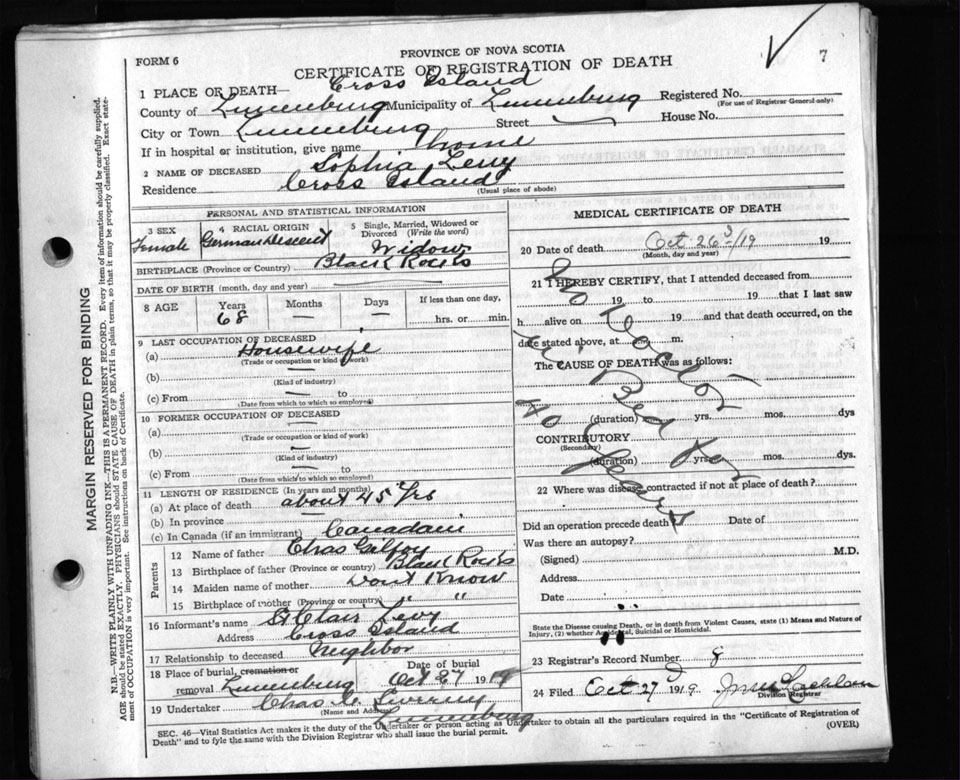 7
PROVINCE OF NOVA SCOTIA
FORM 6
CERTIFICATE OF REGISTRATION OF DEATH
1 PLACE OR DEATH— Cross Island
County of Lunenburg Municipality of Lunenburg Registered No.
(For use of Registrar General only)
City or Town Lunenburg Street House No.
If in hospital or institution, give name home
2 NAME OF DECEASED Sophia Levy
Residence Cross Island
(Usual place of abode)
PERSONAL AND STATISTICAL INFORMATION
3 SEX 4 RACIAL ORIGIN 5 Single, Married, Widowed or Divorced (Write the word)
Female German Descent Widow
BIRTHPLACE (Province or Country) Black Rocks
DATE OF BIRTH (month, day and year)
8 AGE Years Months Days If less than one day,
68 — — hrs. or min.
9 LAST OCCUPATION OF DECEASED
(a) Housewife
(Trade or occupation or kind of work)
(b) —
(Kind of industry)
(c) From — to
(Date from which to which so employed)
10 FORMER OCCUPATION OF DECEASED
(a) —
(Trade or occupation or kind of work)
(b) —
(Kind of industry)
(c) From — to
(Date from which to which so employed)
11 LENGTH OF RESIDENCE (In years and months)
(a) At place of death about 45 Yrs
(b) In province
(c) In Canada (if an immigrant) Canadain
Parents
12 Name of father Chas
13 Birthplace of father (Province or country) Black Rocks
14 Maiden name of mother Dont Know
15 Birthplace of mother (Province or country) " "
16 Informant's name St Clair Levy
Address Cross Island
17 Relationship to deceased Neighbor
18 Place of burial, cremation or removal Lunenburg Date of burial Oct 27 1919
19 Undertaker Chas
(Name and Address) Lunenburg
MEDICAL CERTIFICATE OF DEATH
20 Date of death Oct 26 /19 19
(Month, day and year)
21 I HEREBY CERTIFY, that I attended deceased from
19 to 19 that I last saw
h alive on 19 and that death occurred, on the
date stated above, at m.
The CAUSE OF DEATH was as follows:
No Doctor
(duration) yrs. mos. dys
CONTRIBUTORY
(Secondary)
(duration) yrs mos. dys.
22 Where was disease contracted if not at place of death?
Did an operation precede death Date of
Was there an autopsy?
(Signed) M.D.
Address
Date
State the Disease causing Death, or in death from Violent Causes, state (1) Means and Nature of
Injury, (2) whether Accidental, Suicidal or Homicidal.
23 Registrar's Record Number 8
24 Filed Oct 27 1919
Division Registrar
SEC. 46—Vital Statistics Act makes it the duty of the Undertaker or person acting as Undertaker to obtain all the particulars required in the "Certificate of Registration of
Death" and to fyle the same with the Division Registrar who shall issue the burial permit.
(OVER)
MARGIN RESERVED FOR BINDING
N.B.—WRITE PLAINLY WITH UNFADING INK—THIS IS A PERMANENT RECORD. Every item of information should be carefully supplied.
AGE should be stated EXACTLY. PHYSICIANS should STATE CAUSE OF DEATH in plain terms, so that it may be properly classified. Exact state-
ment of OCCUPATION is very important. See instructions on back of Certificate.